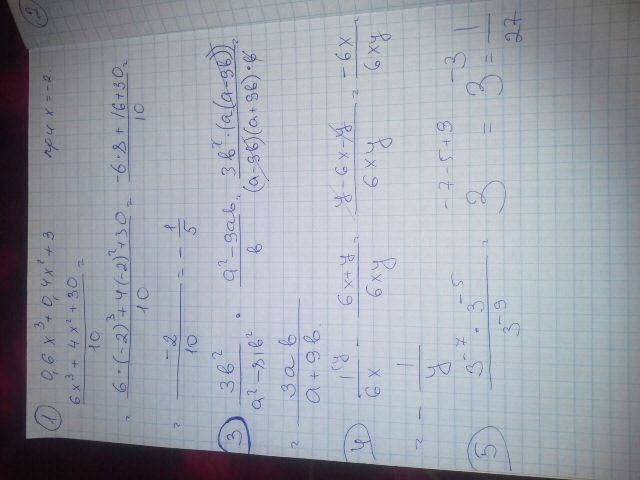 ②
① 0,6x³ + 0,4x² + 3 при x = -2
(6x³ + 4x² + 30)/10 =
= (6·(-2)³ + 4(-2)² + 30)/10 = (-6·8 + 16 + 30)/10 =
= -2/10 = -1/5
③ 3в²/(a² - 81в²) · (a² - 9aв)/в = (3в²·(a(a-9в)))/((a-9в)(a+9в)·в) =
= 3aв/(a+9в)
④ 1/6x - (6x+y)/6xy = (y - 6x - y)/6xy = -6x/6xy
= - 1/y
⑤ (3⁻⁷ · 3⁻⁵)/3⁻⁹ = 3⁻⁷⁻⁵⁺⁹ = 3⁻³ = 1/27